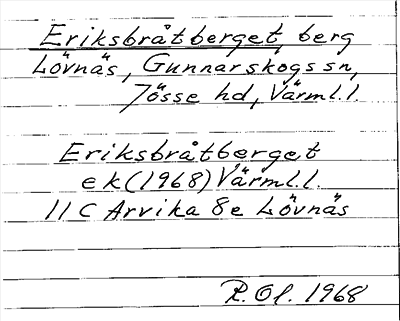 Eriksbråtberget, berg
Lövnäs, Gunnarskogs sn,
Jösse hd, Värml.l.
Eriksbråtberget
ek (1968) Värml.l.
11 C Arvika 8e Lövnäs
R. Ol. 1968